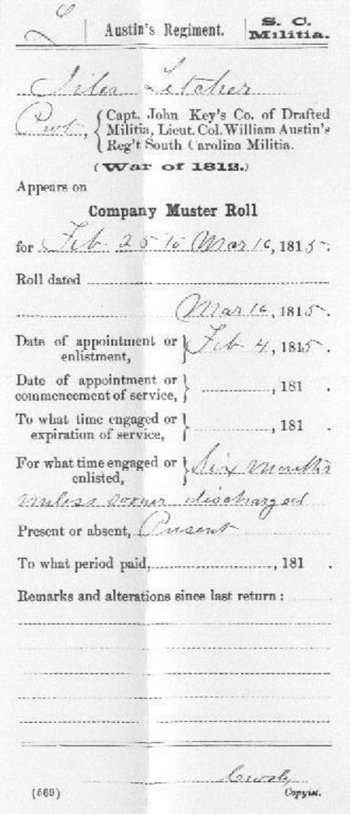 L | Austin's Regiment. | S. C. Militia.
Giles Letcher
Pvt, { Capt. John Key's Co. of Drafted
Militia, Lieut. Col. William Austin's
Reg't South Carolina Militia.
(War of 1812.)
Appears on
Company Muster Roll
for Feb 25 to Mar 16, 1815.
Roll dated
Mar 16, 1815.
Date of appointment or
enlistment, } Feb 4, 1815.
Date of appointment or
commencement of service, } , 181 .
To what time engaged or
expiration of service, } , 181 .
For what time engaged or
enlisted, } Six Months
unless sooner discharged
Present or absent, Present
To what period paid, , 181 .
Remarks and alterations since last return:
(569) Copyist.